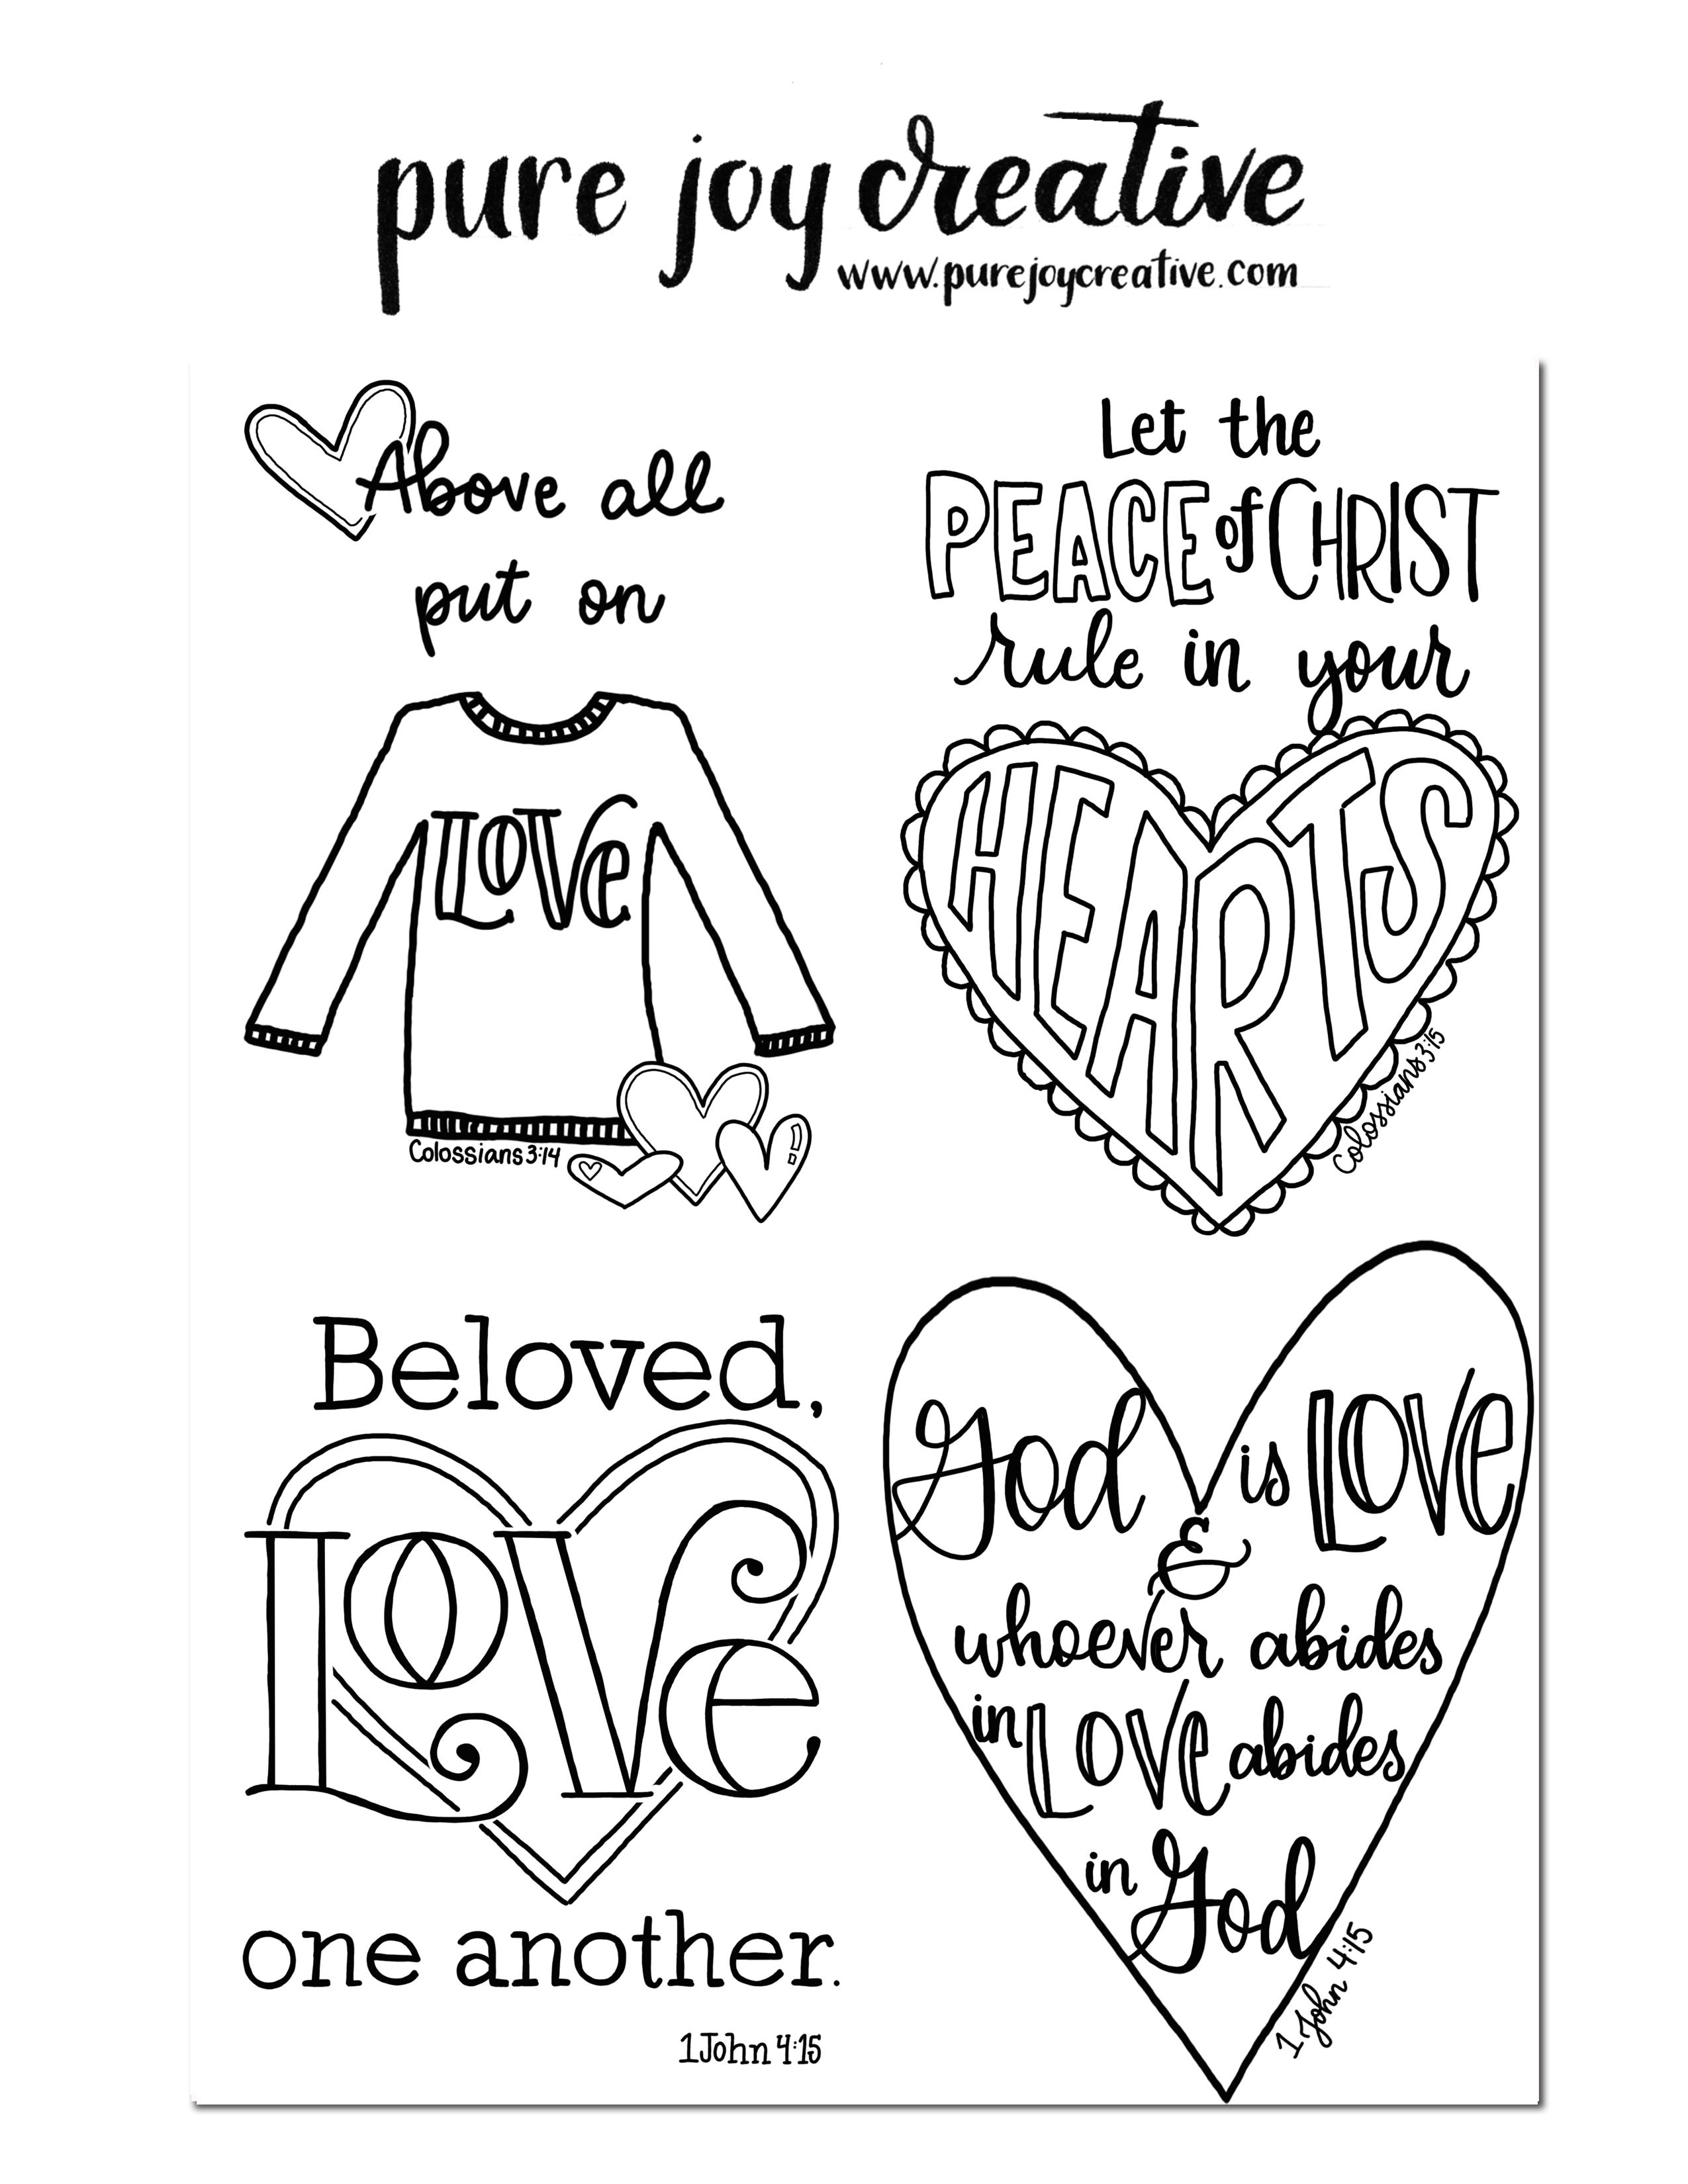 pure joy creative
www.purejoycreative.com
Above all
put on
LOVe
Colossians 3:14
Let the
PEACE of CHRIST
rule in your
HEARTS
Colossians 3:15
Beloved,
LOVe
one another.
1 John 4:15
God is LOVe
&
whoever abides
in LOVe abides
in God
1 John 4:15